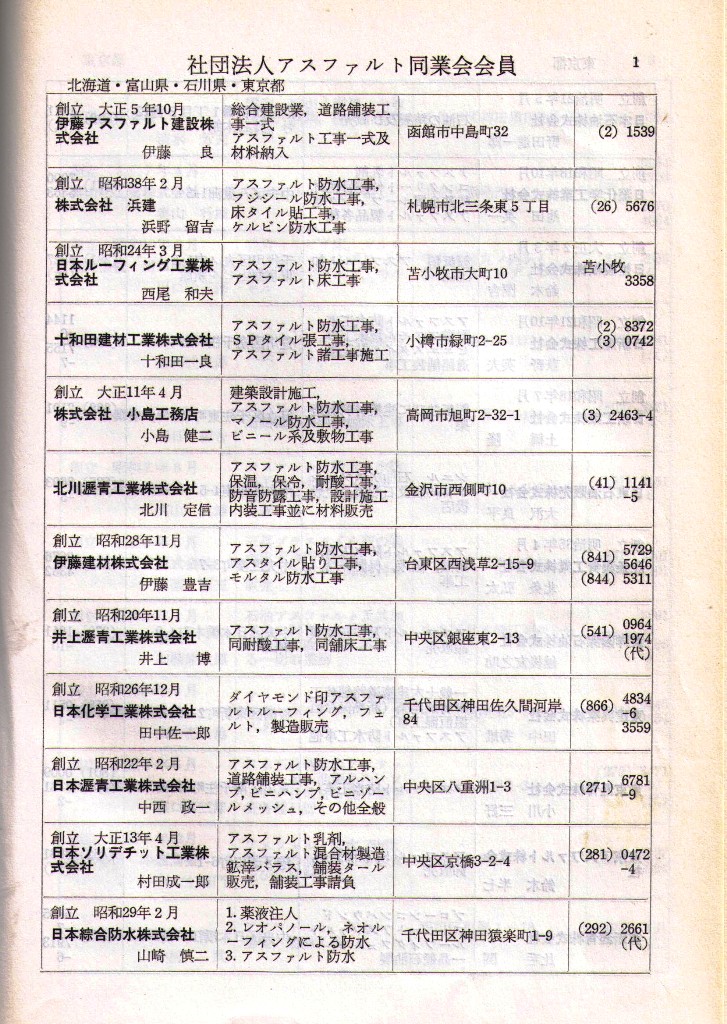 社団法人アスファルト同業会会員
1
北海道・富山県・石川県・東京都
創立　大正5年10月
伊藤アスファルト建設株
式会社
伊藤　良
総合建設業，道路舗装工
事一式
アスファルト工事一式及
材料納入
函館市中島町32
(2) 1539
創立　昭和38年2月
株式会社　浜建
浜野　留吉
アスファルト防水工事，
フジシール防水工事，
床タイル貼工事，
ケルビン防水工事
札幌市北三条東5丁目
(26) 5676
創立　昭和24年3月
日本ルーフィング工業株
式会社
西尾　和夫
アスファルト防水工事，
アスファルト床工事
苫小牧市大町10
苫小牧
3358
十和田建材工業株式会社
十和田一良
アスファルト防水工事，
SPタイル張工事，
アスファルト諸工事施工
小樽市緑町2-25
(2) 8372
(3) 0742
創立　大正11年4月
株式会社　小島工務店
小島　健二
建築設計施工，
アスファルト防水工事，
マノール防水工事，
ビニール系及敷物工事
高岡市旭町2-32-1
(3) 2463-4
北川瀝青工業株式会社
北川　定信
アスファルト防水工事，
保温，保冷，耐酸工事，
防音防露工事，設計施工
内装工事並に材料販売
金沢市西側町10
(41) 1141
-5
創立　昭和28年11月
伊藤建材株式会社
伊藤　豊吉
アスファルト防水工事，
アスタイル貼り工事，
モルタル防水工事
台東区西浅草2-15-9
5729
(841) 5646
(844) 5311
創立　昭和20年11月
井上瀝青工業株式会社
井上　博
アスファルト防水工事，
同耐酸工事，同舗床工事
中央区銀座東2-13
(541) 0964
1974
(代)
創立　昭和26年12月
日本化学工業株式会社
田中佐一郎
ダイヤモンド印アスファ
ルトルーフィング，フェ
ルト，製造販売
千代田区神田佐久間河岸
84
(866) 4834
-6
3559
創立　昭和22年2月
日本瀝青工業株式会社
中西　政一
アスファルト防水工事，
道路舗装工事，アルハン
プ，ビニハンプ，ビニソー
ルメッシュ，その他全般
中央区八重洲1-3
(271) 6781
-9
創立　大正13年4月
日本ソリデチット工業株
式会社
村田成一郎
アスファルト乳剤，
アスファルト混合材製造
鉱滓バラス，舗装タール
販売，舗装工事請負
中央区京橋3-2-4
(281) 0472
-4
創立　昭和29年2月
日本綜合防水株式会社
山崎　慎二
1. 薬液注人
2. レオパノール，ネオル
ーフィングによる防水
3. アスファルト防水
千代田区神田猿楽町1-9
(292) 2661
(代)